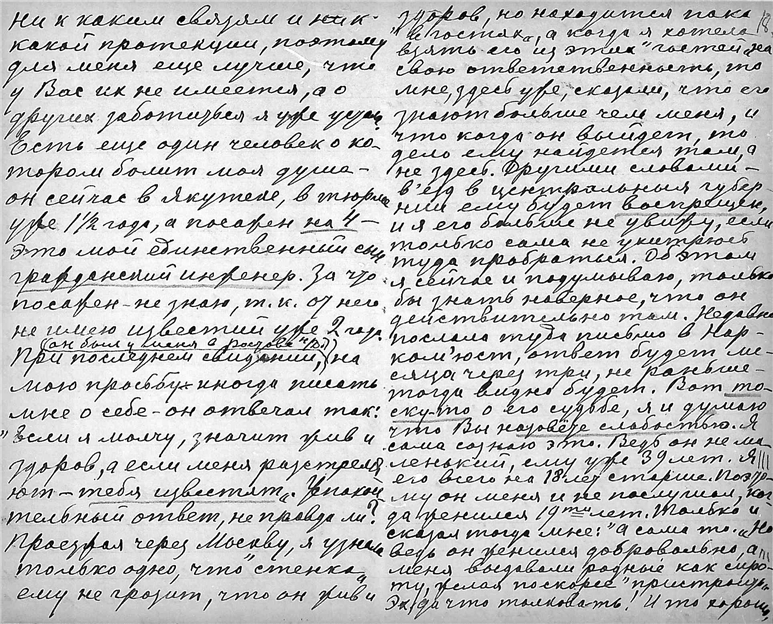 ни к каким связям и ник-
какой протекции, поэтому
для меня еще лучше, что
у Вас их не имеется, а о
других заботиться я уже устала.
Есть еще один человек о ко-
тором болит моя душа-
он сейчас в Якутске, в тюрьме
уже 1½ года, а посажен на 4 –
это мой единственный сын
гражданский инженер. За что
посажен – не знаю, т.к. от него
не имею известий уже 2 года
(он был у меня в
При последнем свидании, на
мою просьбу иногда писать
мне о себе – он отвечал так:
"Если я молчу, значит жив и
здоров, а если меня расстреля-
ют – тебя известят". Успокои-
тельный ответ, не правда ли?
Проезжая через Москву, я узнала
только одно, что "стенка"
ему не грозит, что он жив и
18
здоров, но находится пока
"в гостях", а когда я хотела
взять его из этих "гостей" на
свою ответственность, то
мне, здесь уже, сказали, что его
знают больше чем меня, и
что когда он выйдет, то
дело ему найдется там, а
не здесь. Другими словами –
в'езд в центральныя губер-
нии ему будет воспрещен,
и я его больше не увижу, если
только сама не ухитрюсь
туда пробраться. Об этом
я сейчас и подумываю, только
бы знать наверное, что он
действительно там. Недавно
послала туда письмо в Нар-
ком'юст, ответ будет ме-
сяца через три, не раньше –
тогда видно будет. Вот то-
ску-то о его судьбе, я и думаю
что Вы назовете слабостью. Я
сама сознаю это. Ведь он не ма-
ленький, ему уже 39 лет. Я
его всего на 18 лет старше. Поэто-
му он меня и не послушал, ког-
да женился 19ти лет. Только и
сказал тогда мне: "А сама то". Но
ведь он женился добровольно, а
меня выдавали родные как сиро-
ту, желая поскорее "пристроить".
Эх, да что толковать! И то хорошо,